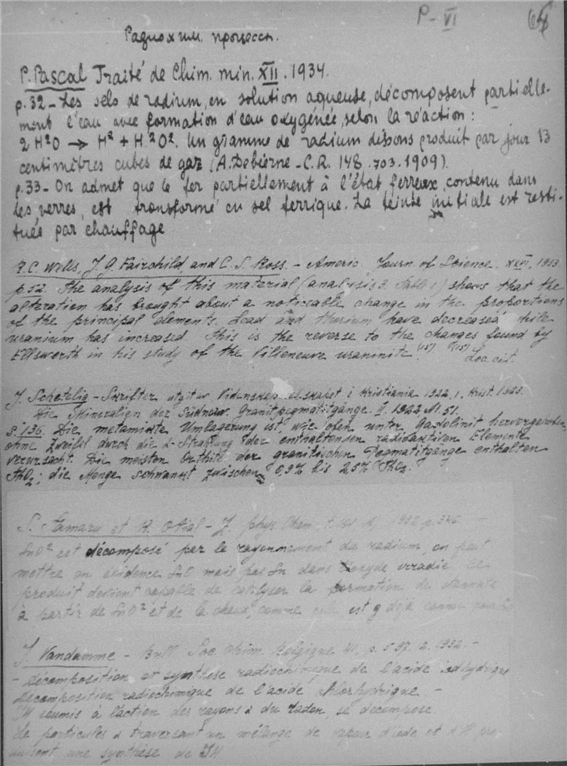 P-VI
Радиохим. процессы.
P. Pascal Traité de Chim. min. XII. 1934.
p. 32 – Les sels de radium, en solution aqueuse, décomposent partielle-
ment l'eau avec formation d'eau oxygénée, selon la réaction:
2H²O → H² + H²O². Un gramme de radium dissous produit par jour 13
centimètres cubes de gaz (A. Debierne – C.R. 148. 703. 1909).
p. 33 – On admet que le fer partiellement à l'état ferreux, contenu dans
les verres, est transformé en sel ferrique. La teinte initiale est resti-
tuée par chauffage
R.C. Wells, J.G. Fairchild and C.S. Ross. – Americ. Journ. of Science. XXVI, 1933.
p. 52. The analysis of this material (analysis 3, table 1) shows that the
alteration has brought about a noticeable change in the proportions
of the principal elements. Lead and thorium have decreased while
uranium has increased. This is the reverse to the changes found by
Ellsworth in his study of the Villeneuve uraninite.
Loc. cit.
J. Schetelig – Skrifter utgitt Vidensk. selskabet i Kristiania 1922, 1.
Die Mineralien der Südnorw. Granitpegmatitgänge. II. 1922 № 51.
S. 136. Die metamikte Umlagerung ist wie oben unter Gadolinit hervorgehoben
ohne Zweifel durch die α-Strahlung der enthaltenden radioaktiven Elemente
verursacht. Die meisten Orthite der granitischen Pegmatitgänge enthalten
ThO₂: die Menge schwankt zwischen 0,9% bis 2,5% ThO₂.
décomposé par le rayonnement du radium, on peut
mettre en évidence mais pas dans
produit devient capable de la formation de
à partir de SnO² et de la chaux, comme déjà connu
J. Vandamme – Bull. Soc. Chim. Belgique 41, p. 597. 1932. –
Décomposition et synthèse radiochimique de l'acide iodhydrique
Décomposition radiochimique de l'acide chlorhydrique –
IH soumis à l'action des rayons α du radon, se décompose
de particules α traversant un mélange de vapeur d'iode et d'H
une synthèse de IH